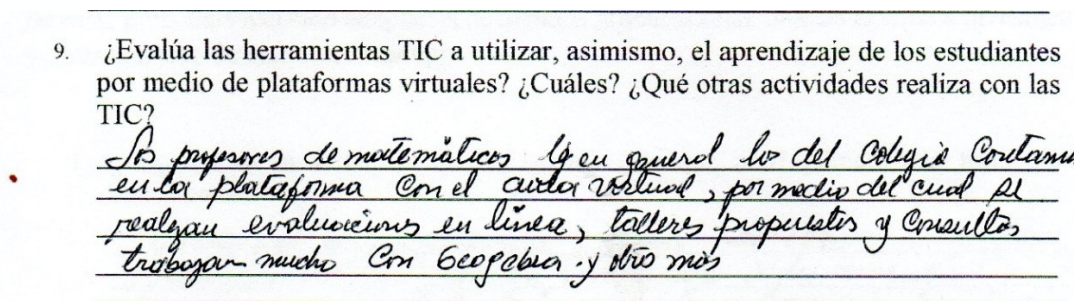 9. ¿Evalúa las herramientas TIC a utilizar, asimismo, el aprendizaje de los estudiantes
por medio de plataformas virtuales? ¿Cuáles? ¿Qué otras actividades realiza con las
TIC?
Los profesores de matemáticas y en general los del Colegio Contam
en la plataforma Con el aula virtual, por medio del cual se
realizan evaluaciones en línea, talleres propuestos y Consultas
trabajan mucho Con Geogebra y otro más